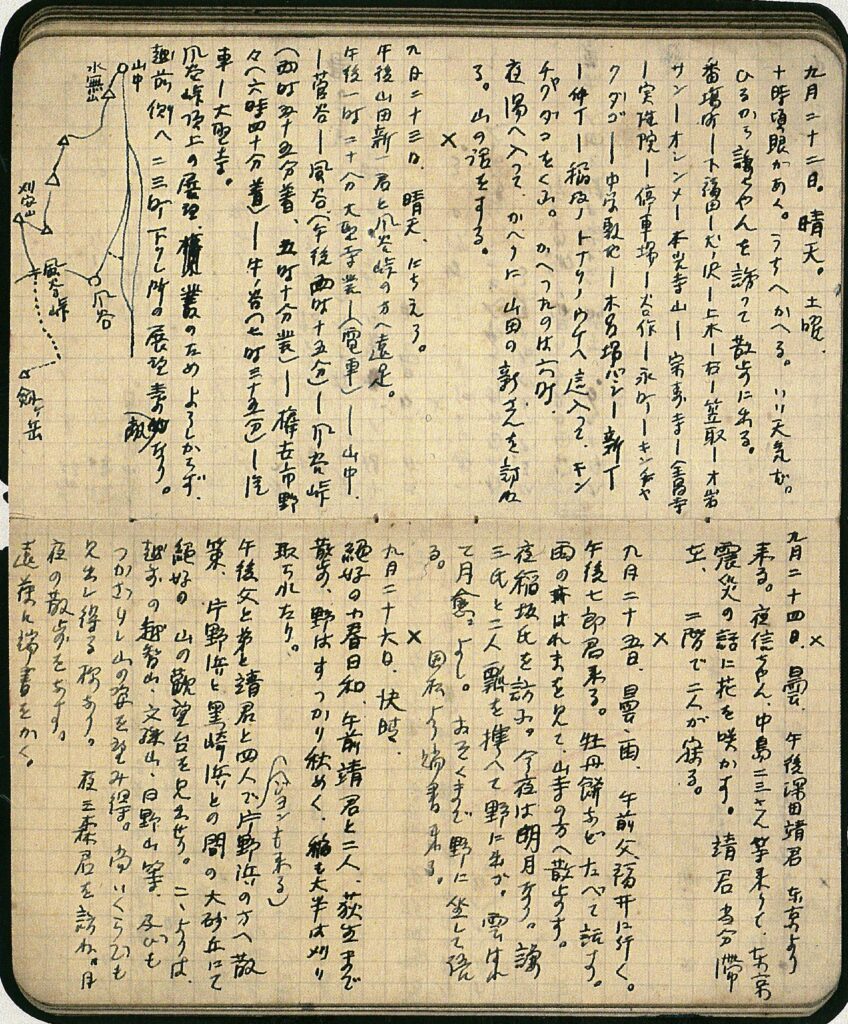 九月二十二日。晴天。土曜、
十時頃眼があく。うちへかへる。いい天気だ。
ひるから譲ちやんを誘って散歩に出る。
番場町ー下福田ー犬ノ沢ー上木ー右ー笠取ーオ岩
サンーオレンメー本光寺山ー宗寿寺ー全昌寺
ー実性院ー停車場ー
ー仲丁ー稲及ノトナリノウチヘ這入って、キン
をくふ。かへつたのは六時、
夜湯へ入って、かへりに山田の新さんを訪ね
る。山の話をする。
×
九月二十三日、晴天、にちえう。
午後山田新一君と風谷峠の方へ遠足。
午後一時二十分大聖寺発ー(電車)ー山中、
ー菅谷ー風谷、(午後四時十五分)ー風谷峠
(四時五十五分着、五時十分発)ー樺古市野
々(六時四十分着)ー牛ノ谷(七時三十五分)ー汽
車ー大聖寺。
風谷峠頂上の展望、叢のためよろしからず、
越前側へ二三町下りし所の展望素敵なり。
(敵)
山中
水無山
刈安山
風谷峠
風谷
剣ヶ岳
×
九月二十四日、曇、午後深田靖君東京より
来る。夜信ちやん、中島二三さん等来りて、東京
震災の話に花を咲かす。靖君当分滞
在、二階で二人が寝る。
×
九月二十五日、曇、雨、午前父福井に行く。
午後七郎君来る。牡丹餅などたべて話す。
雨のはれまを見て、山寺の方へ散歩す。
夜稲坂氏を訪ふ。今夜は明月なり。譲
三氏と二人瓢を携へて野に出づ。雲はれ
て月愈々よし。おそくまで野に坐して語
る。
より端書来る。
×
九月二十六日、快晴、
絶好の小春日和、午前靖君と二人、荻生まで
散歩、野はすつかり秋めく、稲も大半は刈り
取られたり。
も来る)
午後父と弟と靖君と四人で片野浜の方へ散
策、片野浜と黒崎浜との間の大砂丘にて
絶好の山の観望台を見出せり。こゝよりは、
越前の越智山、文殊山、日野山等、及びも
つかざりし山の姿を望み得。尚いくらでも
見出し得る様あり。夜三森君を訪ね。月
夜の散歩をなす。
遠藤に端書をかく。